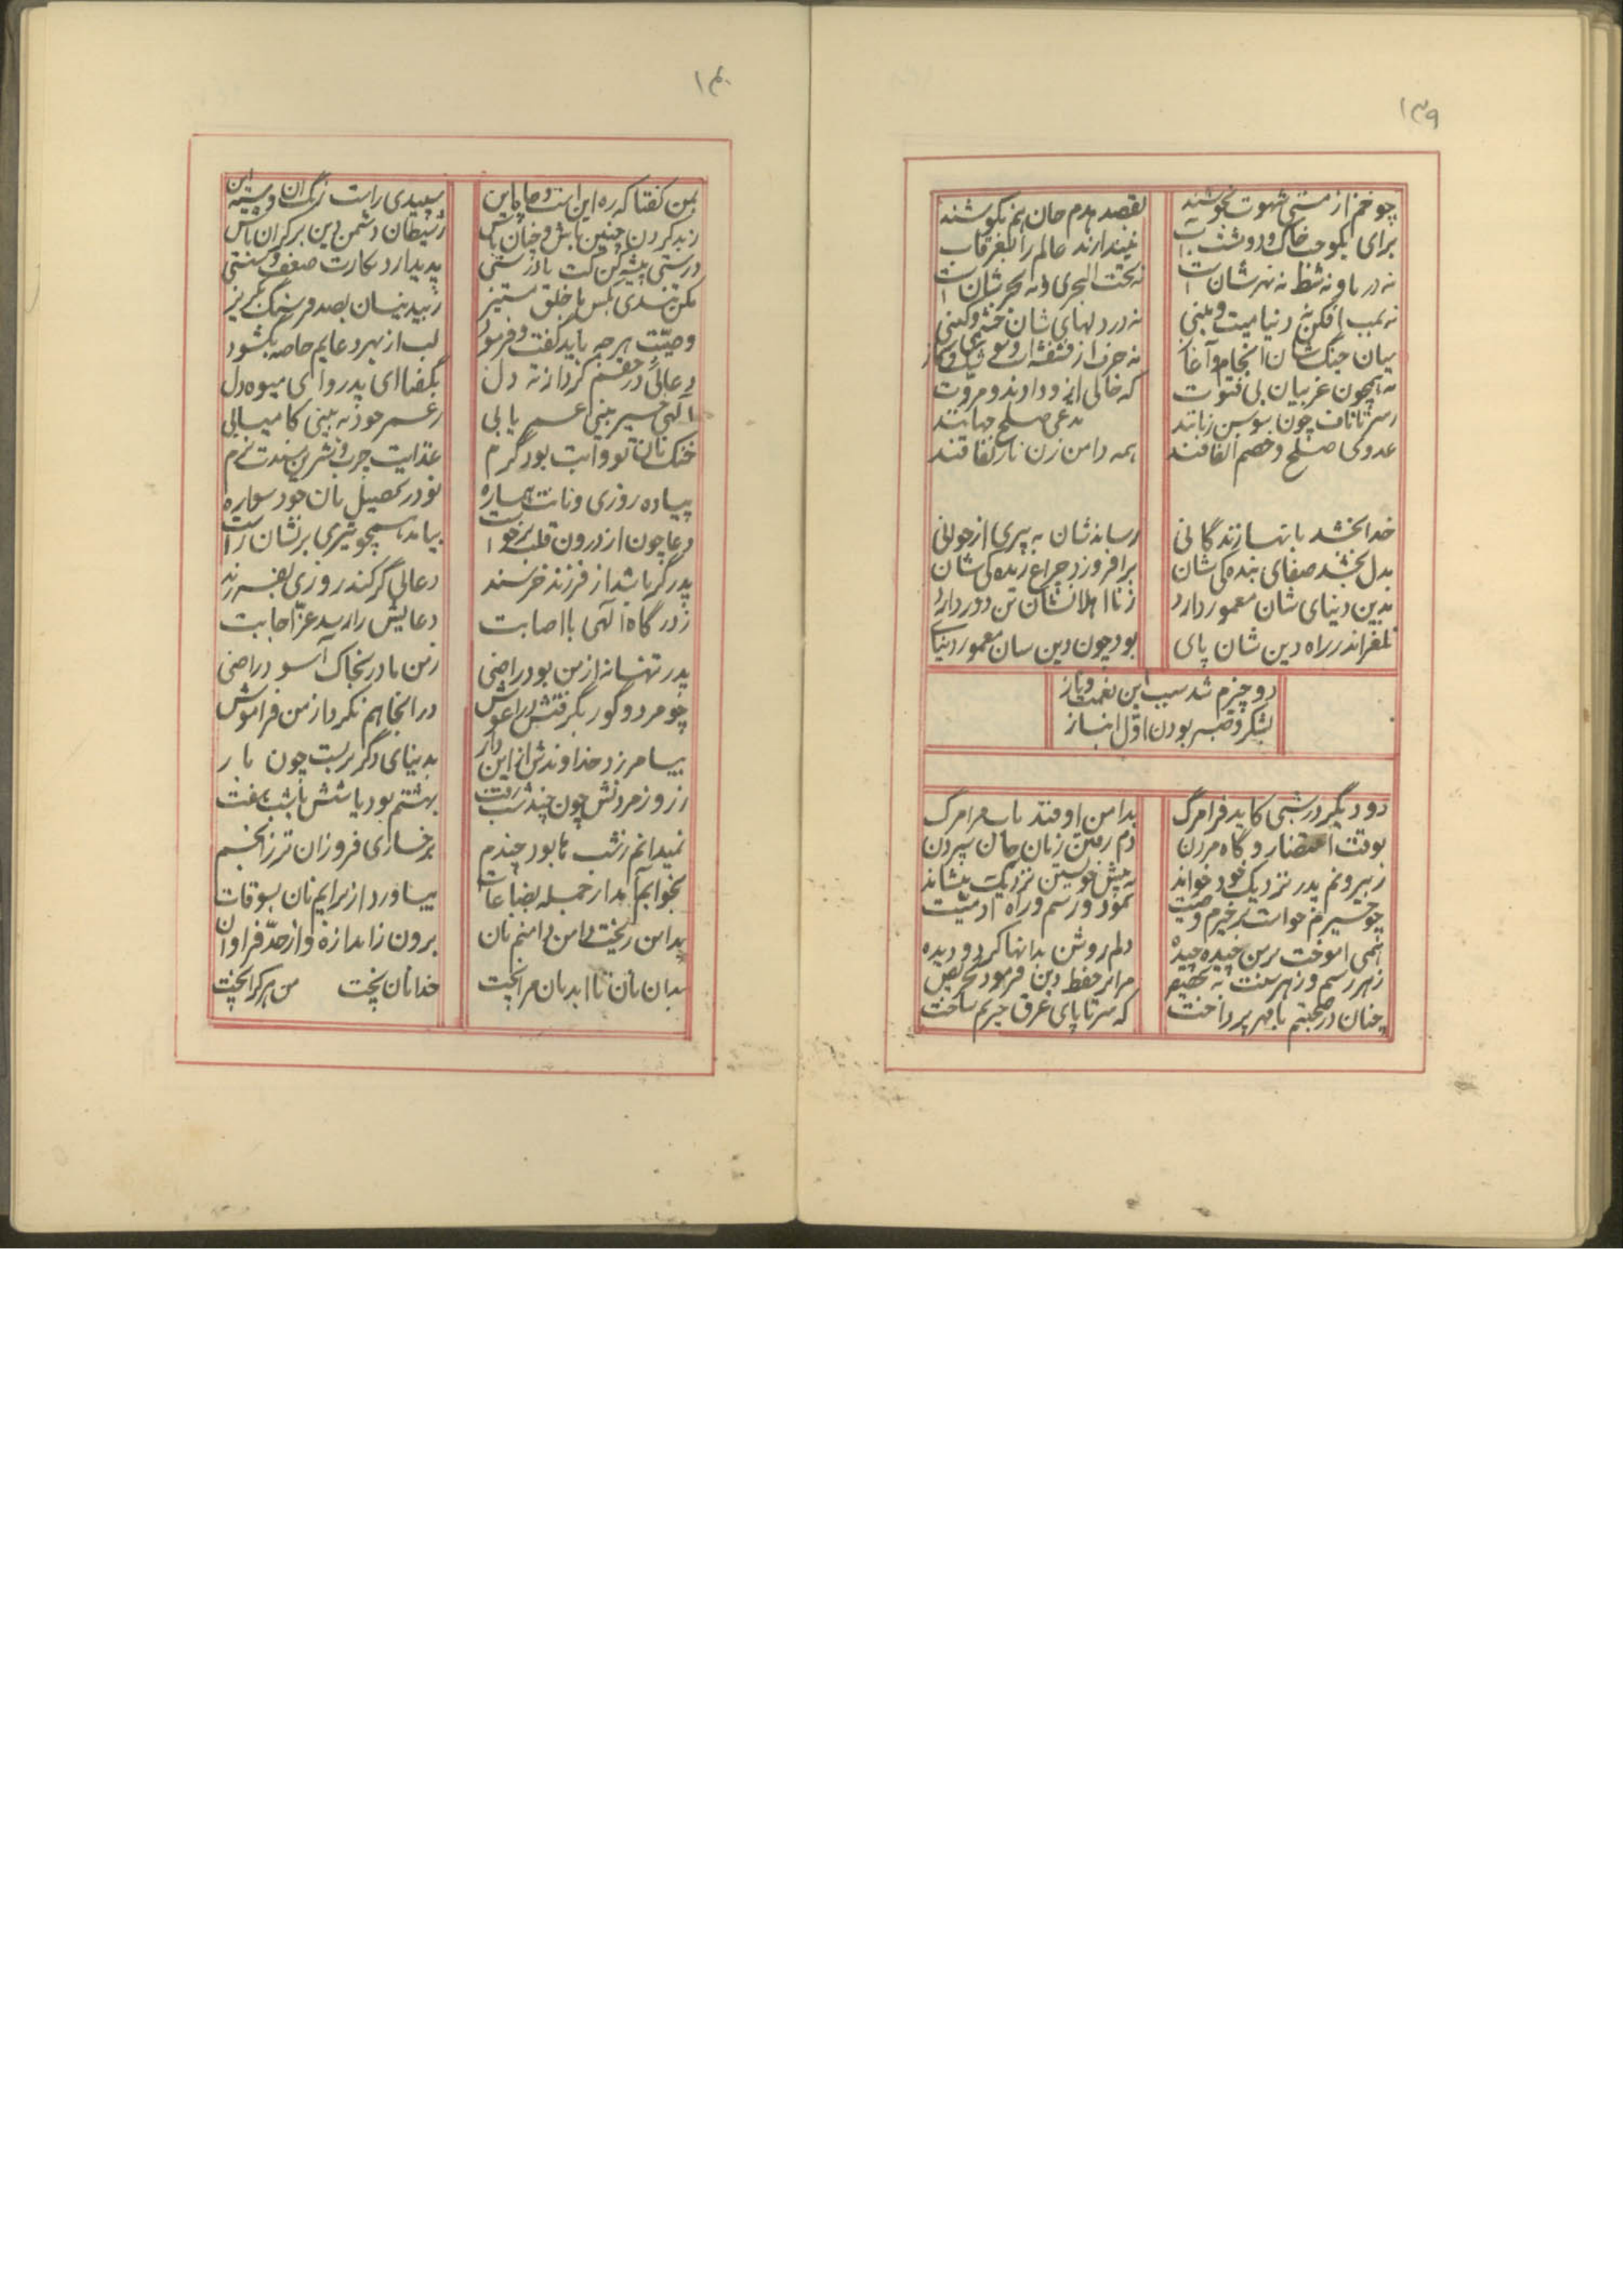 ۱۳۹
چو خم از مستی شهوت نجوشند
بقصد هدم جان هم نکوشند
برای یکوجب خاک و دوشت آب
نیندازند عالم را بغرقاب
نه دریا و نه شط نه نهرشان است
نه تحت البحری و نه بحرشان است
نه بمب افکن نه دنیا میت و مینی
نه در دلهای شان خشمی و کینی
میان جنگ شان انجام و آغاز
نه حرف از نقشه است و
نه همچون غربیان بی فتوت
که خالی از وداد و مروت
سر تا ناف چون سوسن زبانند
مدعی صلح جهانند
عدوی صلح و خصم اتفاقند
همه دامن زن نار نفاقند
خدا بخشد بانها زندگانی
رساندشان به پیری از جوانی
بدل بخشد صفای بندگی شان
برافروزد چراغ زندگی شان
بدین دنیای شان معمور دارد
ز نااهلانشان تن دور دارد
نلغزاند در راه دین شان پای
بود چون دین سان معمور دنیای
دو چیزم شد سبب این نعمت و ناز
بشکر و صبر بودن اول انباز
دو دیگر در شبی کاید فرا مرگ
بدامن اوفتد باب مرا مرگ
بوقت احتضار و گاه مردن
دم رفتن زمان جان سپردن
ز بیرونم پدر نزدیک خود خواند
به پیش خویشتن نزدیک بنشاند
چو خیرم خواست بر خیرم وصیت
نمود و رسم و راه آدمیت
همی آموخت بر من چیده چیده
دلم روشن بدانها کرد و دیده
ز هر رسم و ز هر سنت به تخصیص
مرا بر حفظ دین فرمود تحریص
چنان در صحبتم با مهر پرداخت
که سر تا پای غرق حیرتم ساخت
۱۴۰
بمن گفتا که ره این است و چاه این
سپیدی راست رنگ آن و سیه این
ز بد کردن چنین باش و چنان باش
ز شیطان دشمن دین بر کران باش
درستی پیشه کن کت نادرستی
پدید آرد بکارت ضعف و سستی
مکن تندی بکس با خلق مستیز
ز بیدینسان بصد فرسنگ بگریز
وصیت هر چه باید گفت و فرمود
لب از بهر دعایم خاصه بگشود
دعائی در حقم کرد از ته دل
بگفتا ای پدر را ای میوه دل
الهی خیر بینی عمر یابی
ز عمر خود نه بینی کامیابی
خنک نان تو و آبت بود گرم
غذایت چرب و شیرین بسترت نرم
پیاده روزی و نانت هماره
تو در تحصیل نان خود سواره
دعا چون از درون قلب برخواست
بیاید همچو تیری بر نشان راست
پدر گر باشد از فرزند خرسند
دعائی گر کند روزی بفرزند
ز درگاه الهی با اصابت
دعایش را رسد عز اجابت
پدر تنها نه از من بود راضی
ز من مادر بخاک آسود راضی
چو مرد و گور بگرفتش در آغوش
در آنجا هم نکرد از من فراموش
بیامرزد خداوندش از این دار
به دنیای دگر بربست چون بار
ز روز مردنش چون چند شب رفت
بهشتم بود یا شش یا شب هفت
نمیدانم ز شب تا بود چندم
برخساری فروزان تر ز انجم
بخوابم آمد از جمله بضاعات
بیاورد از برایم نان بسوقات
بدامن ریخت دامن دامنم نان
برون ز اندازه و از حد فراوان
بدان نان تا ابد نان مرا پخت
خدا نان پخت من هر کرا پخت